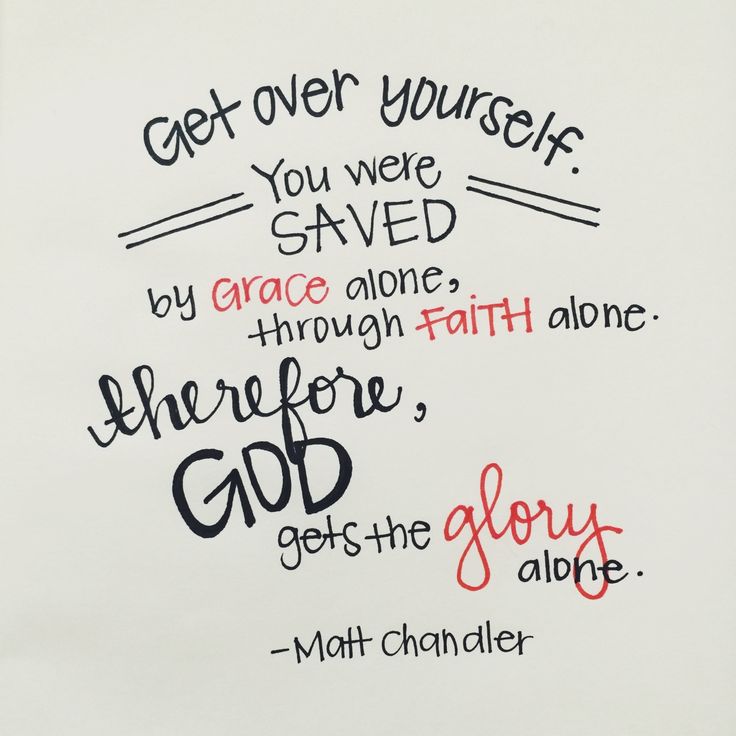 Get over yourself.
You were
SAVED
by Grace alone,
through FaiTH alone.
therefore,
GOD
gets the glory
alone.
-Matt Chandler